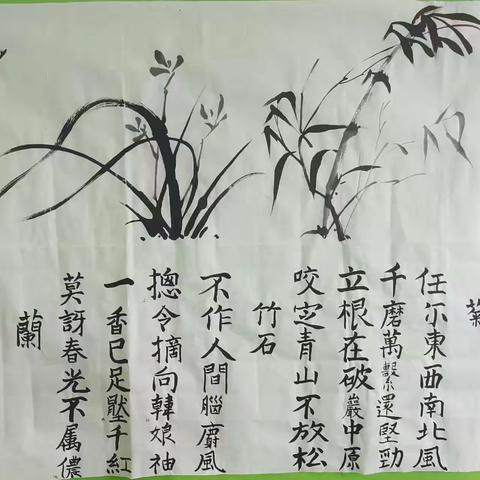 蘭
莫訝春光不属儂
一香已足壓千紅
摠令摘向韓娘袖
不作人間腦麝風
竹石
咬定青山不放松
立根在破巖中原
千磨萬繫還堅勁
任尔東西南北風
菊